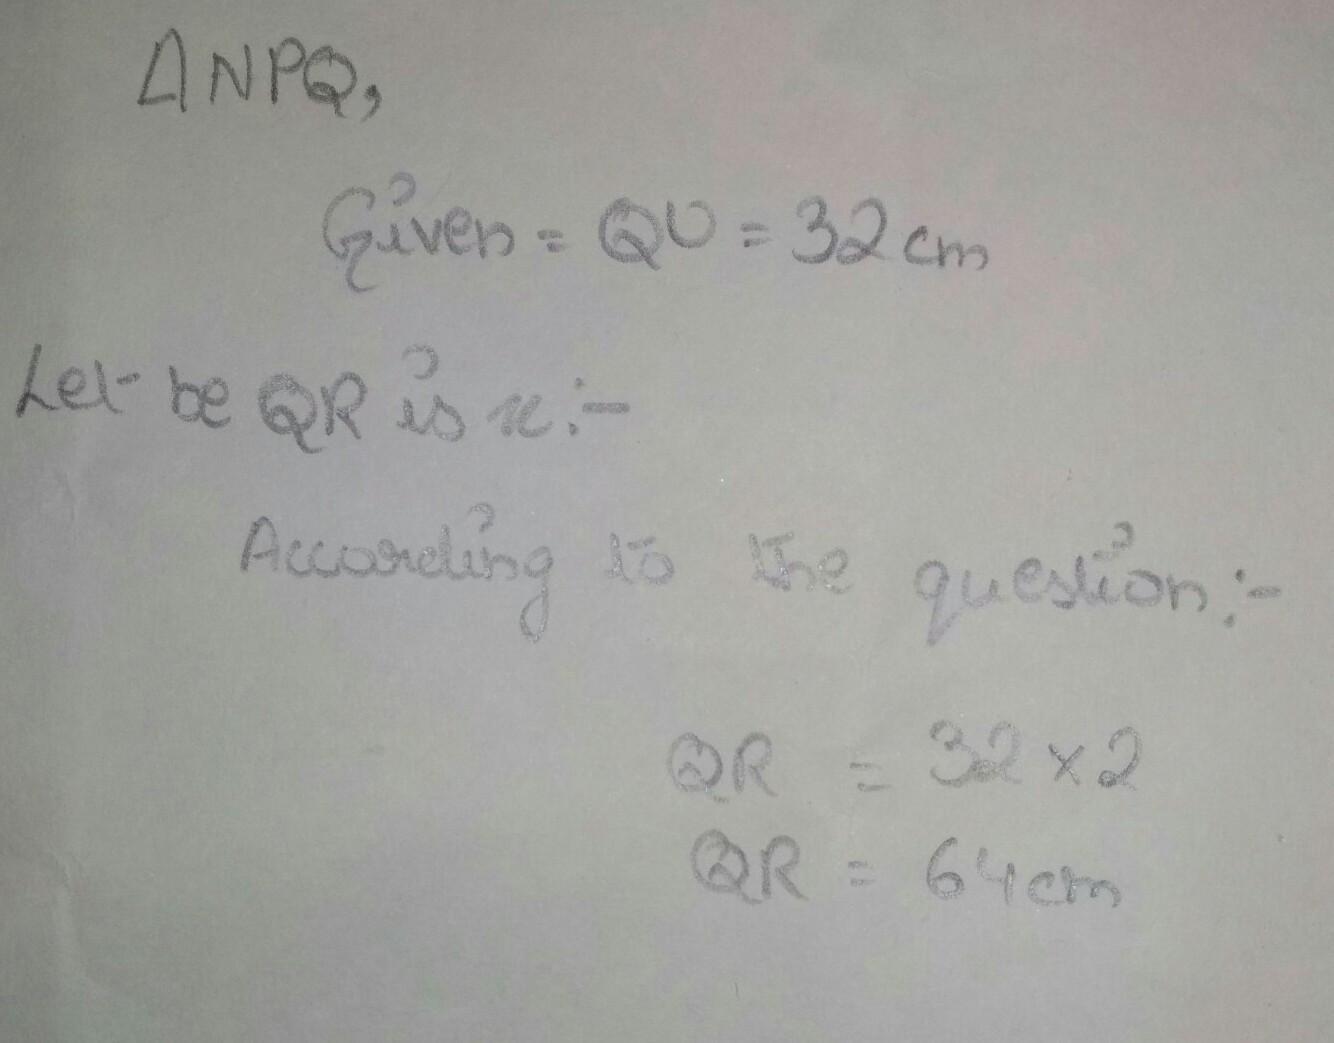 ΔNPQ,
Given = QU = 32 cm
Let be QR is x:-
According to the question:-
QR = 32 × 2
QR = 64 cm